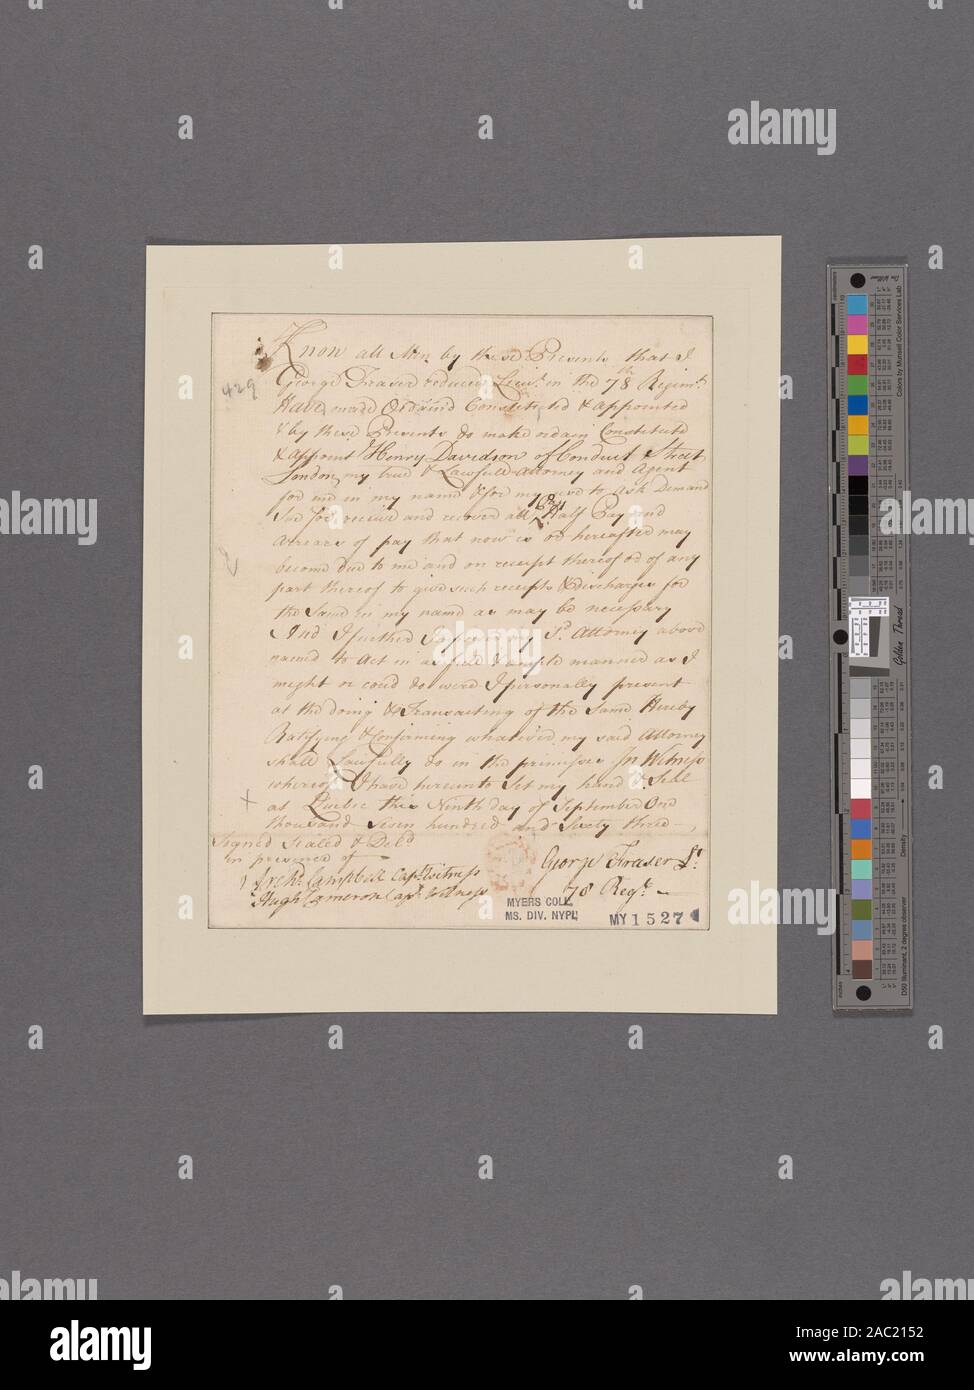 Know all Men by these Presents that I
George Fraser reduced Lieut. in the 78th Regimt.
Have made Ordaind Constituted & appointed
& by these Presents do make ordain Constitute
& appoint Henry Davidson of Conduct Street
London my true & Lawfull Attorney and Agent
for me in my name & for my use to ask Demand
Sue for receive and recover all Half Pay and
Arrears of pay that now is or hereafter may
become due to me and on receipt thereof or of any
part thereof to give such receipts & discharges for
the Same in my name as may be necessary
And I further Impower my Sd. Attorney above
named to Act in as full & ample manner as I
might or coud do were I personally present
at the doing & Transacting of the Same Hereby
Ratifying & Confirming whatever my said Attorney
shall Lawfully do in the premisses In Witness
whereof I have hereunto Set my hand & Seal
at Quebec this Ninth day of September One
thousand Seven hundred and Sixty three
Signed Sealed & Deld.
in presence of
Archd. Campbell Capt. Witness
Hugh Cameron Capt. Witness
George Fraser Lt.
78 Regt.
429
MYERS COLL.
MS. DIV. NYPL
MY 1527
Golden Thread
Colors by Munsell Color Services Lab
D50 Illuminant, 2 degree observer
Density
inches
centimeters
alamy
alamy
alamy
alamy
alamy
alamy
alamy
Image ID: 2AC2152
www.alamy.com